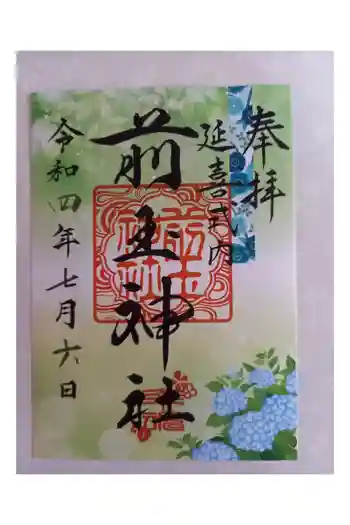 奉拝
延喜式内
前玉神社
令和四年七月六日
前玉神社